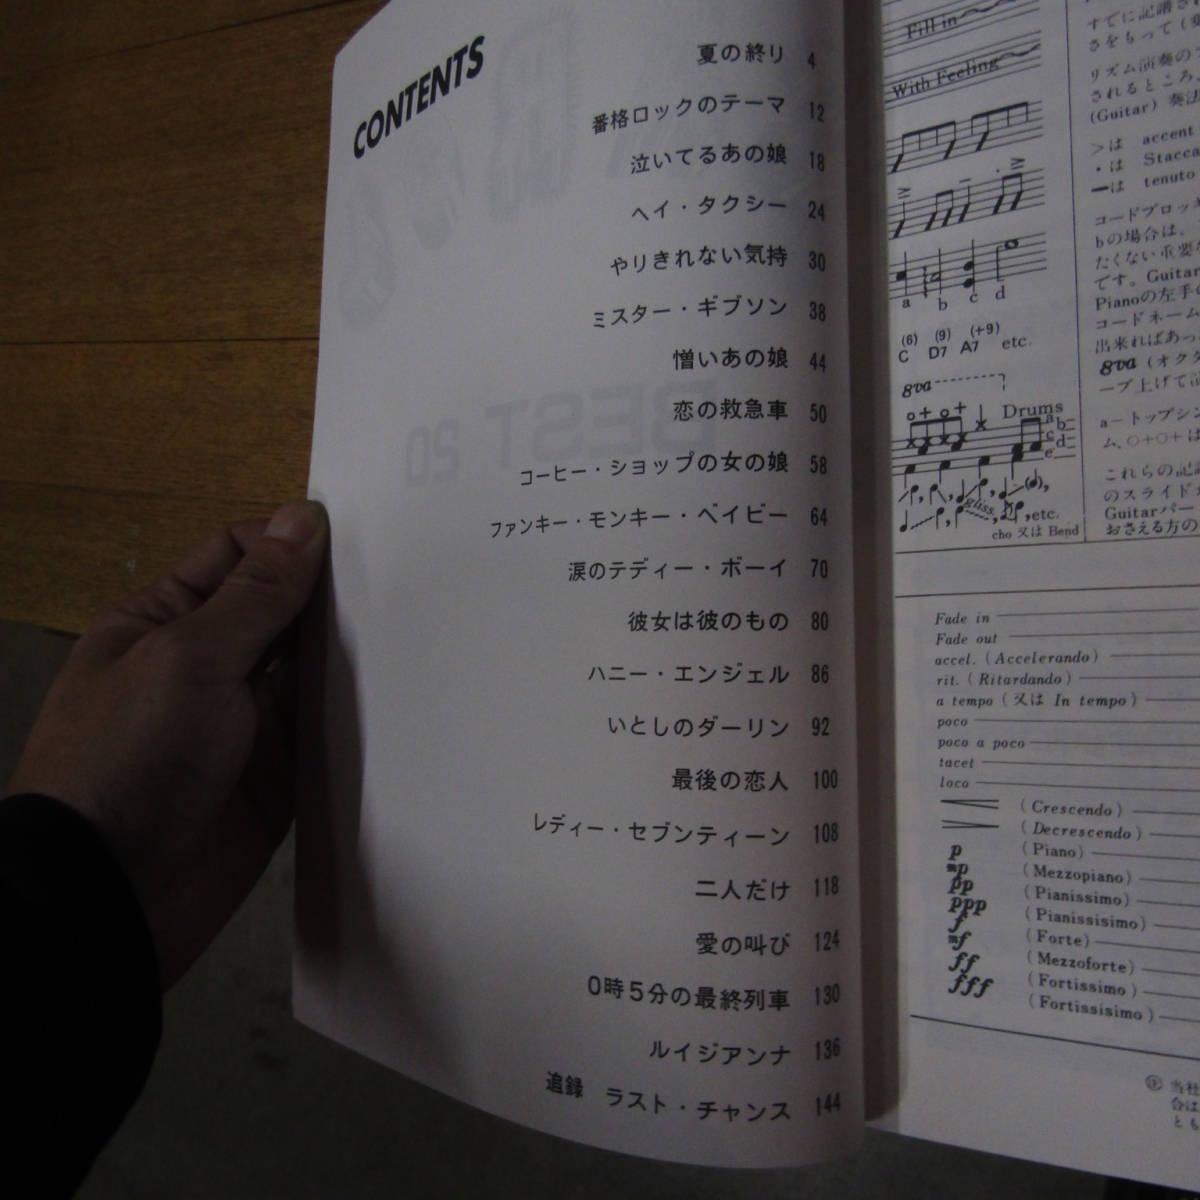 CONTENTS
夏の終り 4
番格ロックのテーマ 12
泣いてるあの娘 18
ヘイ・タクシー 24
やりきれない気持 30
ミスター・ギブソン 38
憎いあの娘 44
恋の救急車 50
コーヒー・ショップの女の娘 58
ファンキー・モンキー・ベイビー 64
涙のテディー・ボーイ 70
彼女は彼のもの 80
ハニー・エンジェル 86
いとしのダーリン 92
最後の恋人 100
レディー・セブンティーン 108
二人だけ 118
愛の叫び 124
0時5分の最終列車 130
ルイジアンナ 136
追録 ラスト・チャンス 144
BEST 20
Fill in
With Feeling
a b c d
(6) (9) (+9)
C D7 A7 etc.
8va
Drums
a
b
c
d
e
gliss.
etc.
cho 又は Bend
すでに記譜さ
さをもって(
リズム演奏の
されるところ
(Guitar) 奏法
>は accent
・は Stacca
ーは tenuto
コードブロッ
bの場合は、
たくない重要
です。Guitar
Pianoの左手の
コードネーム
出来ればあっ
8va (オクタ
ーブ上げて記
a－トップシン
ム、○+○+は
これらの記
のスライド
Guitarパー
おさえる方の
Fade in
Fade out
accel. (Accelerando)
rit. (Ritardando)
a tempo (又は In tempo)
poco
poco a poco
tacet
loco
(Crescendo)
(Decrescendo)
p (Piano)
mp (Mezzopiano)
pp (Pianissimo)
ppp (Pianissisimo)
f (Forte)
mf (Mezzoforte)
ff (Fortissimo)
fff (Fortissisimo)
当社
合は
とも